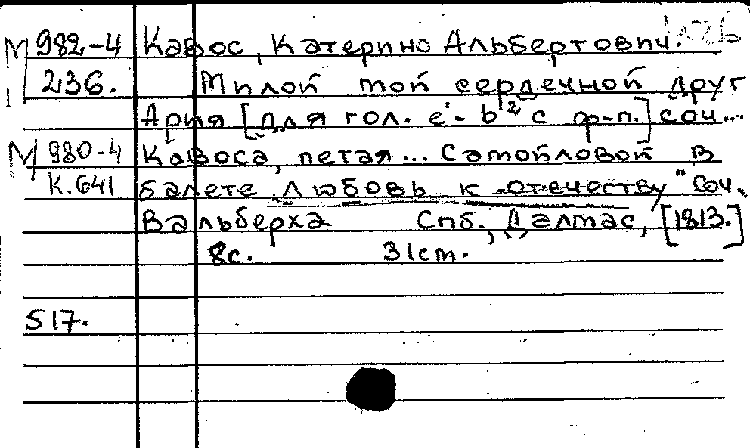 М 982-4 Кавос, Катерино Альбертович.
236. Милой мой сердечной друг
Ария [для гол. e¹- b² с ф-п.] соч...
М 980-4 Кавоса, петая... Самойловой в
К.641 балете „Любовь к отечеству" Соч.
Вальберха Спб., Далмас, [1813.]
8с. 31см.
517.